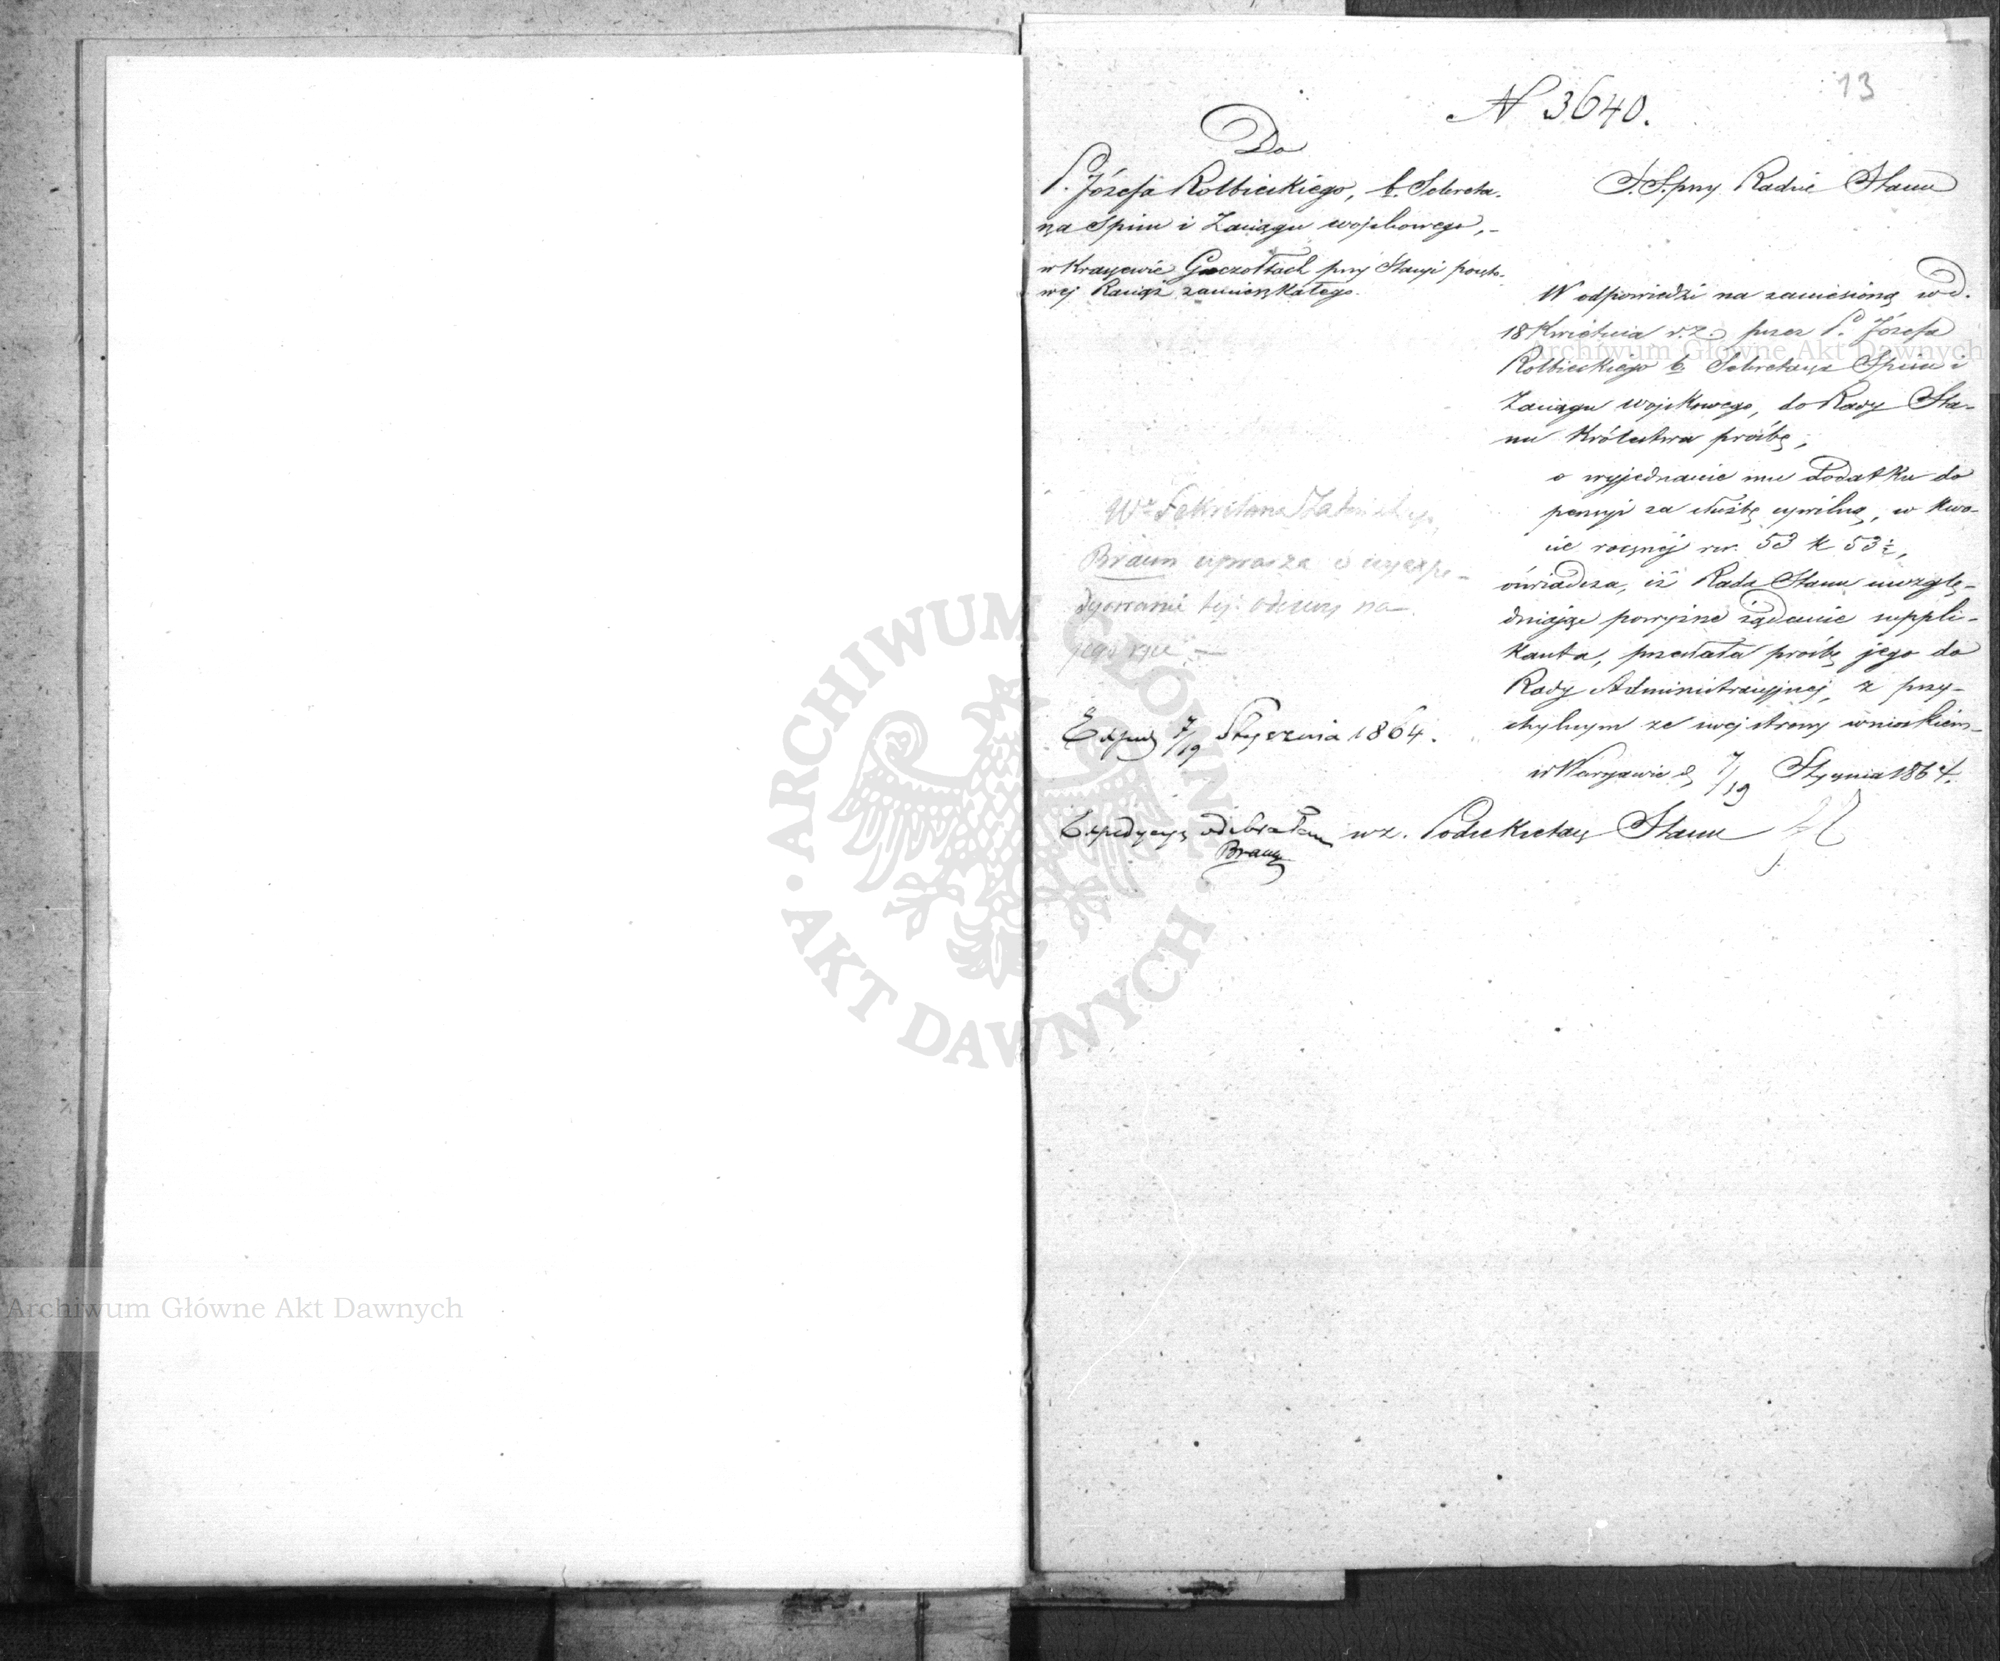 13
N 3640.
Do
P. Józefa Kolbieckiego, b. Sekreta-
rza Spisu i Zaciągu wojskowego,
w Krajewie Goczołtach przy Stacyi poczto-
wej Raciąż zamieszkałego.
S. S. przy Radzie Stanu
W odpowiedzi na zaniesioną w d.
18 Kwietnia r. z. przez P. Józefa
Kolbieckiego b. Sekretarza Spisu i
Zaciągu wojskowego, do Rady Sta-
nu Królestwa prośbę,
o wyjednanie mu dodatku do
pensyi za służbę cywilną, w kwo-
cie rocznéj rsr. 53 k 53½,
oświadcza, iż Rada Stanu uwzglę-
dniając powyższe żądanie suppli-
kanta, przesłała prośbę jego do
Rady Administracyjnej, z przy-
chylnym ze swej strony wnioskiem
w Warszawie d. 7/19 Stycznia 1864.
wz. Podsekretarz Stanu
Wz. Sekretarza
Braun uprasza o wyexpe-
dyowanie tej odezwy na
jego ręce
Exped 7/19 Stycznia 1864.
Expedycyę odebrałem
Braun
ARCHIWUM GŁÓWNE AKT DAWNYCH
Archiwum Główne Akt Dawnych
Archiwum Główne Akt Dawnych